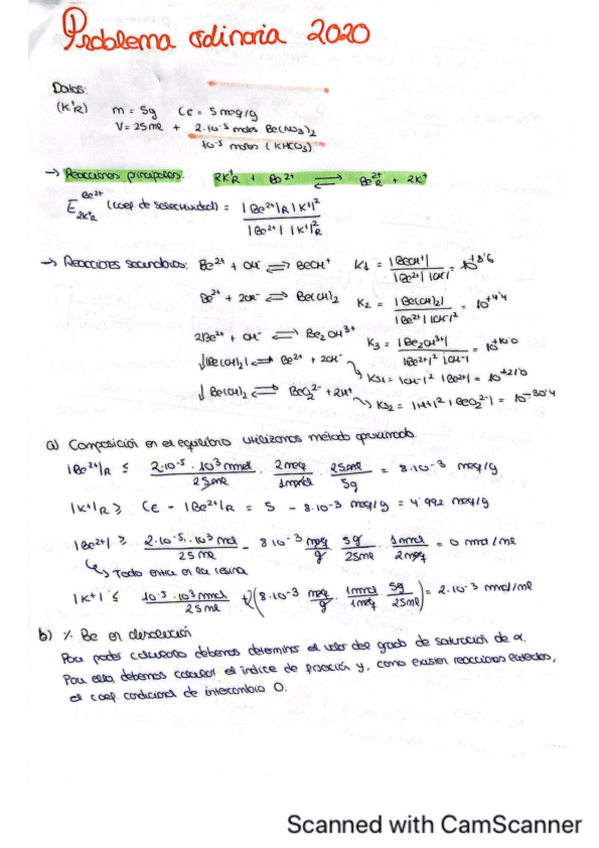 Problema ordinaria 2020
Datos:
(K⁺R) m = 5g Ce = 5 meq/g
V = 25 ml + 2·10⁻⁵ moles Be(NO₃)₂
10⁻⁵ moles (KHCO₃)
→ Reacciones principales: 2K⁺R + Be²⁺ ⇌ Be²⁺R + 2K⁺
E Be²⁺ 2K⁺R (coef. de selectividad) = |Be²⁺|R |K⁺|² / |Be²⁺| |K⁺|²R
→ Reacciones secundarias: Be²⁺ + OH⁻ ⇌ BeOH⁺ K₁ = |BeOH⁺| / |Be²⁺| |OH⁻| = 10⁺⁸'⁶
Be²⁺ + 2OH⁻ ⇌ Be(OH)₂ K₂ = |Be(OH)₂| / |Be²⁺| |OH⁻|² = 10⁺⁴'⁴
2Be²⁺ + OH⁻ ⇌ Be₂OH³⁺ K₃ = |Be₂OH³⁺| / |Be²⁺|² |OH⁻| = 10⁺¹⁰'⁰
↓|Be(OH)₂| ⇌ Be²⁺ + 2OH⁻ → Ks₁ = |OH⁻|² |Be²⁺| = 10⁺²¹'⁰
↓ Be(OH)₂ ⇌ BeO₂²⁻ + 2H⁺ → Ks₂ = |H⁺|² |BeO₂²⁻| = 10⁻³⁰'⁴
a) Composición en el equilibrio utilizamos método aproximado.
|Be²⁺|R ≤ 2·10⁻⁵·10³ mmol / 25 ml · 2 meq / 1 mmol · 25 ml / 5g = 8·10⁻³ meq/g
|K⁺|R ≥ Ce - |Be²⁺|R = 5 - 8·10⁻³ meq/g = 4'992 meq/g
|Be²⁺| ≥ 2·10⁻⁵·10³ mol / 25 ml - 8·10⁻³ meq / g · 5g / 25 ml · 1 mmol / 2 meq = 0 mmol/ml
↳ Todo entra en la resina
|K⁺| ≤ 10⁻⁵·10³ mmol / 25 ml + (8·10⁻³ meq / g · 1 mmol / 1 meq · 5g / 25 ml) = 2·10⁻³ mmol/ml
b) % Be en disolución
Para poder calcularlo debemos determinar el valor del grado de saturación de α.
Para ello, debemos calcular el índice de fijación y, como existen reacciones parásitas,
el coef. condicional de intercambio Q.
Scanned with CamScanner